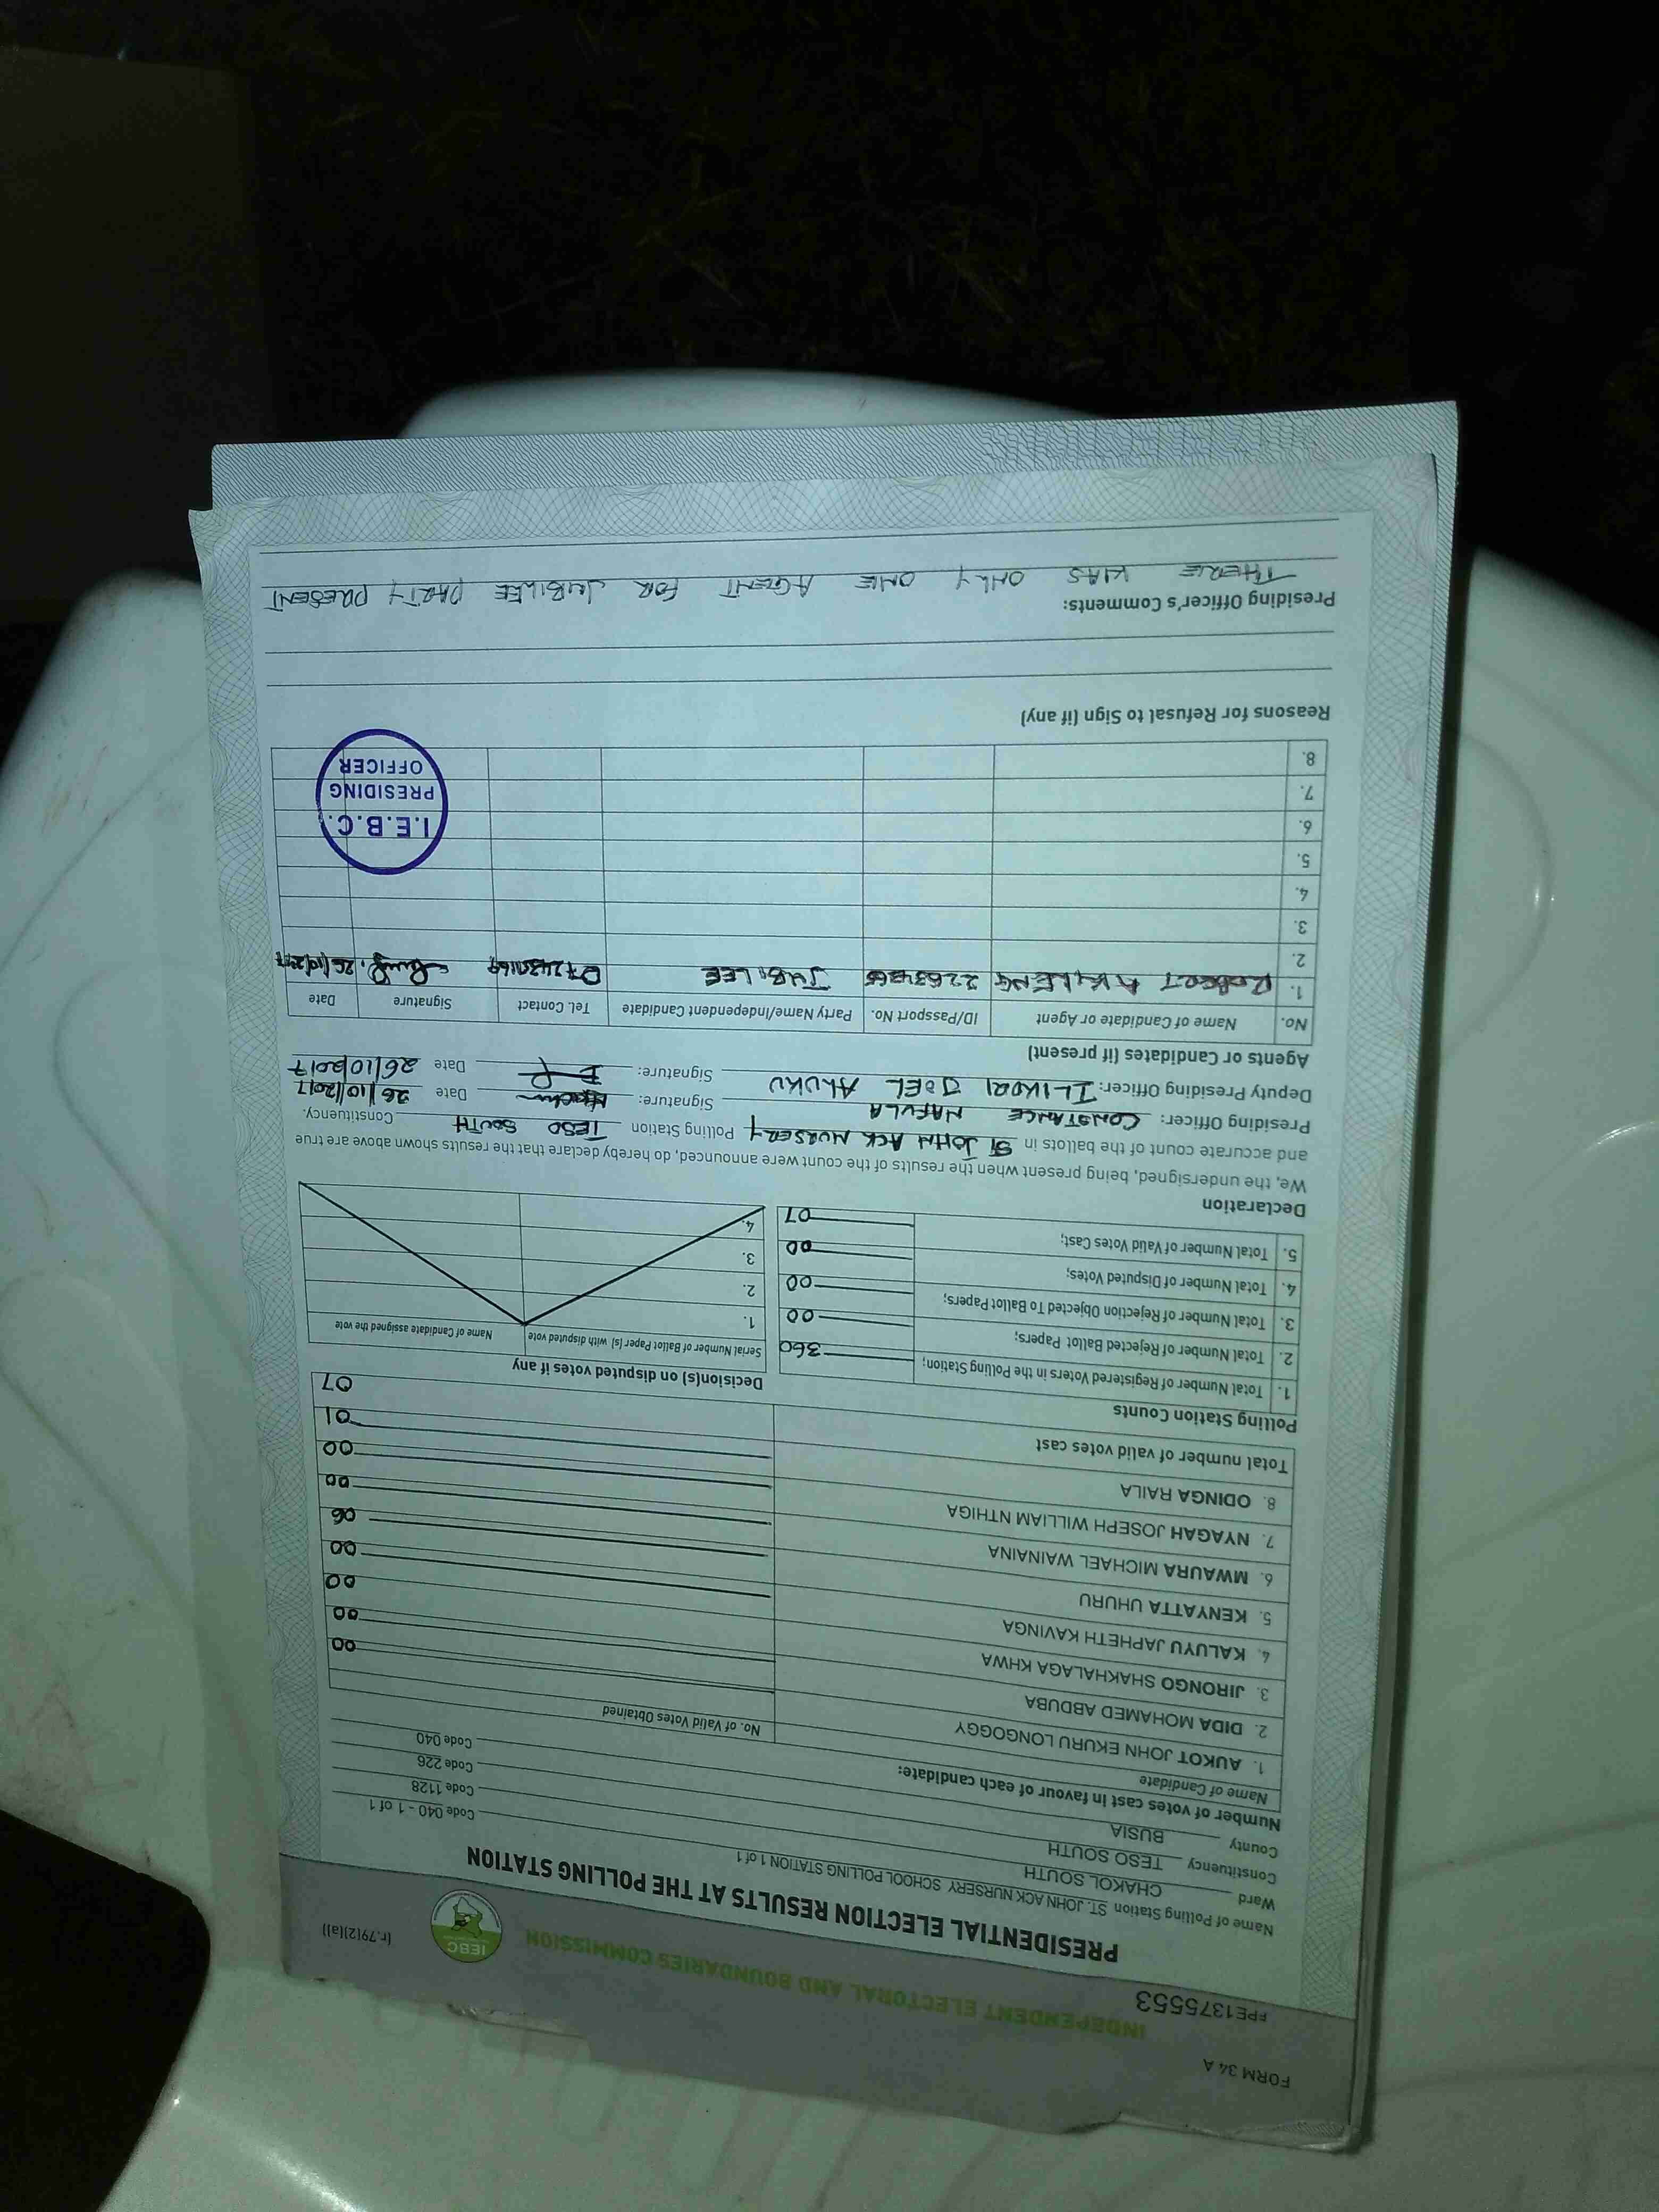 FORM 34 A
FPE1375553
INDEPENDENT ELECTORAL AND BOUNDARIES COMMISSION
IEBC
(r.79(2)(a))
PRESIDENTIAL ELECTION RESULTS AT THE POLLING STATION
Name of Polling Station ST. JOHN ACK NURSERY SCHOOL POLLING STATION 1 of 1 Code 040 - 1 of 1
Ward CHAKOL SOUTH Code 1128
Constituency TESO SOUTH Code 226
County BUSIA Code 040
Number of votes cast in favour of each candidate:
Name of Candidate No. of Valid Votes Obtained
1. AUKOT JOHN EKURU LONGOGGY 00
2. DIDA MOHAMED ABDUBA 00
3. JIRONGO SHAKHALAGA KHWA 00
4. KALUYU JAPHETH KAVINGA 00
5. KENYATTA UHURU 06
6. MWAURA MICHAEL WAINAINA 00
7. NYAGAH JOSEPH WILLIAM NTHIGA 00
8. ODINGA RAILA 01
Total number of valid votes cast 07
Polling Station Counts
1. Total Number of Registered Voters in the Polling Station; 360
2. Total Number of Rejected Ballot Papers; 00
3. Total Number of Rejection Objected To Ballot Papers; 00
4. Total Number of Disputed Votes; 00
5. Total Number of Valid Votes Cast; 07
Decision(s) on disputed votes if any
Serial Number of Ballot Paper (s) with disputed vote Name of Candidate assigned the vote
1.
2.
3.
4.
Declaration
We, the undersigned, being present when the results of the count were announced, do hereby declare that the results shown above are true
and accurate count of the ballots in ST JOHN ACK NURSERY Polling Station TESO SOUTH Constituency.
Presiding Officer: CONSTANCE NAFULA Signature: Date 26/10/2017
Deputy Presiding Officer: ILIKORI JOEL ALUKU Signature: Date 26/10/2017
Agents or Candidates (if present)
No. Name of Candidate or Agent ID/Passport No. Party Name/Independent Candidate Tel. Contact Signature Date
1. ROBERT JUBILEE 26/10/2017
2.
3.
4.
5.
6.
7.
8.
I.E.B.C.
PRESIDING
OFFICER
Reasons for Refusal to Sign (if any)
Presiding Officer's Comments:
THERE WAS ONLY ONE AGENT FOR JUBILEE PARTY PRESENT